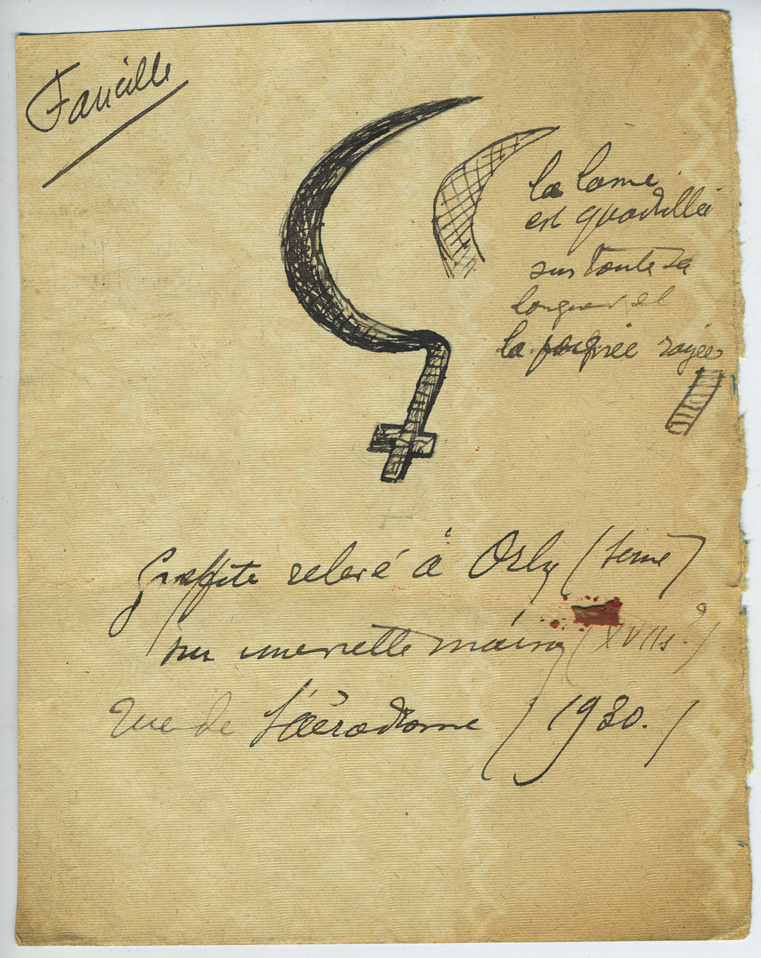 Faucille
la lame
est quadrillée
sur toute sa
longueur et
la poignée rayée
graffite relevé à Orly (Seine)
sur une vieille maison (XVIIs.?)
rue de l'aérodrome (1930.)